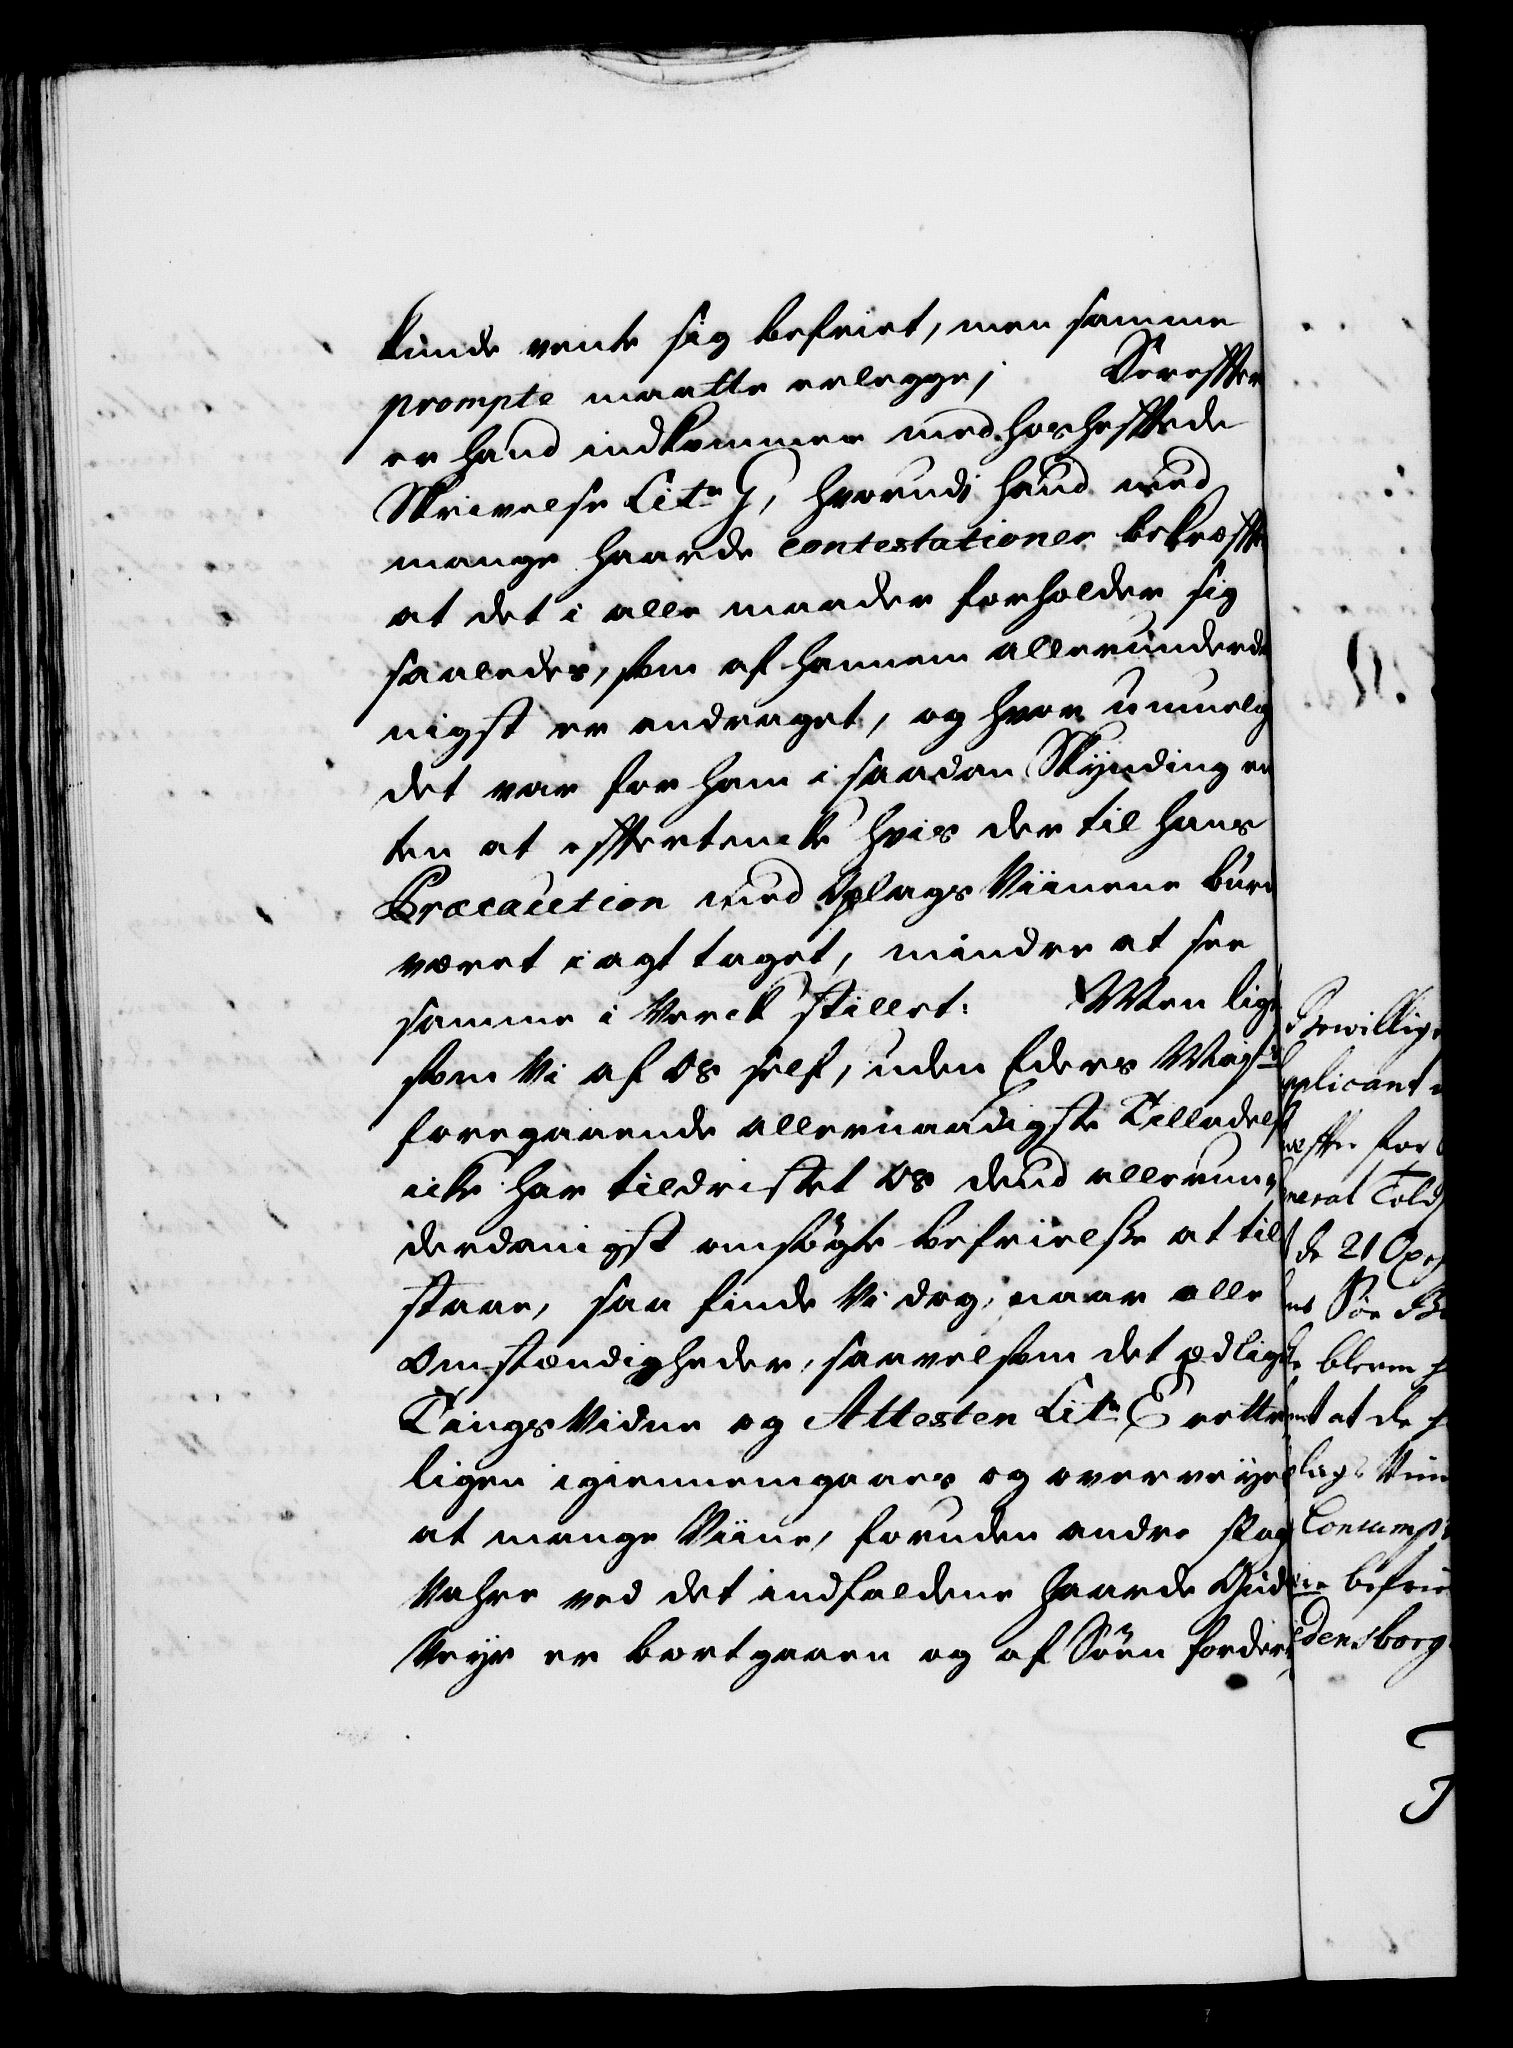 kunde vente sig befriet, men samme
prompte maatte erlegge; Derefter
er hand indkommen med hosheftede
Skrivelse Lit. G, hvorudi hand med
mange haarde contestationer bekræfte
at det i alle maader forholder sig
saaledes, som af hannem allerunderda
nigst er andraget, og hvor umuelig
det var for ham i saadan Skynding en
ten at eftertencke hvis der til hans
Præcaution med Oplags Viinene burd
været i agt taget, mindre at see
samme i Verck stillet: Men lige
som Vi af os self, uden Eders Mayts
foregaaende allernaadigste Tilladelse
icke har tildristet os dend allerun
derdanigst ansøgte befrielse at til
staae, saa finde Vi dog, naar alle
Omstændigheder, saavelsom det edlige
Tings Vidne og Attesten Lit. E rette
ligen igiennemgaaes og overveyes
at mange Viine, foruden andre kiøb
Vahre ved det indfaldene haarde Ond
Veyr er bortgaaen og af Søen forder
Bewillige
plicant
efter for
neral Told
de 21 Oxe
Søe
bleven
at de
lags Viin
Consumpt
befrie
densborg